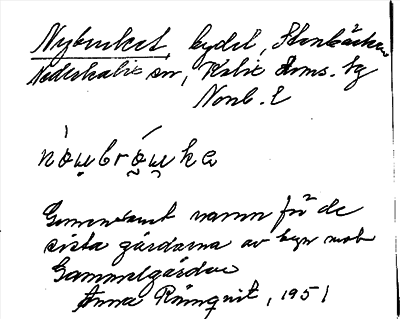 Nybruket, bydel, Storbäcken
Nederkalix sn, Kalix doms. tg
Norrb. l
Gemensamt namn för de
sista gårdarna av byn mot
Gammelgården
Anna Rönnqvist, 1951